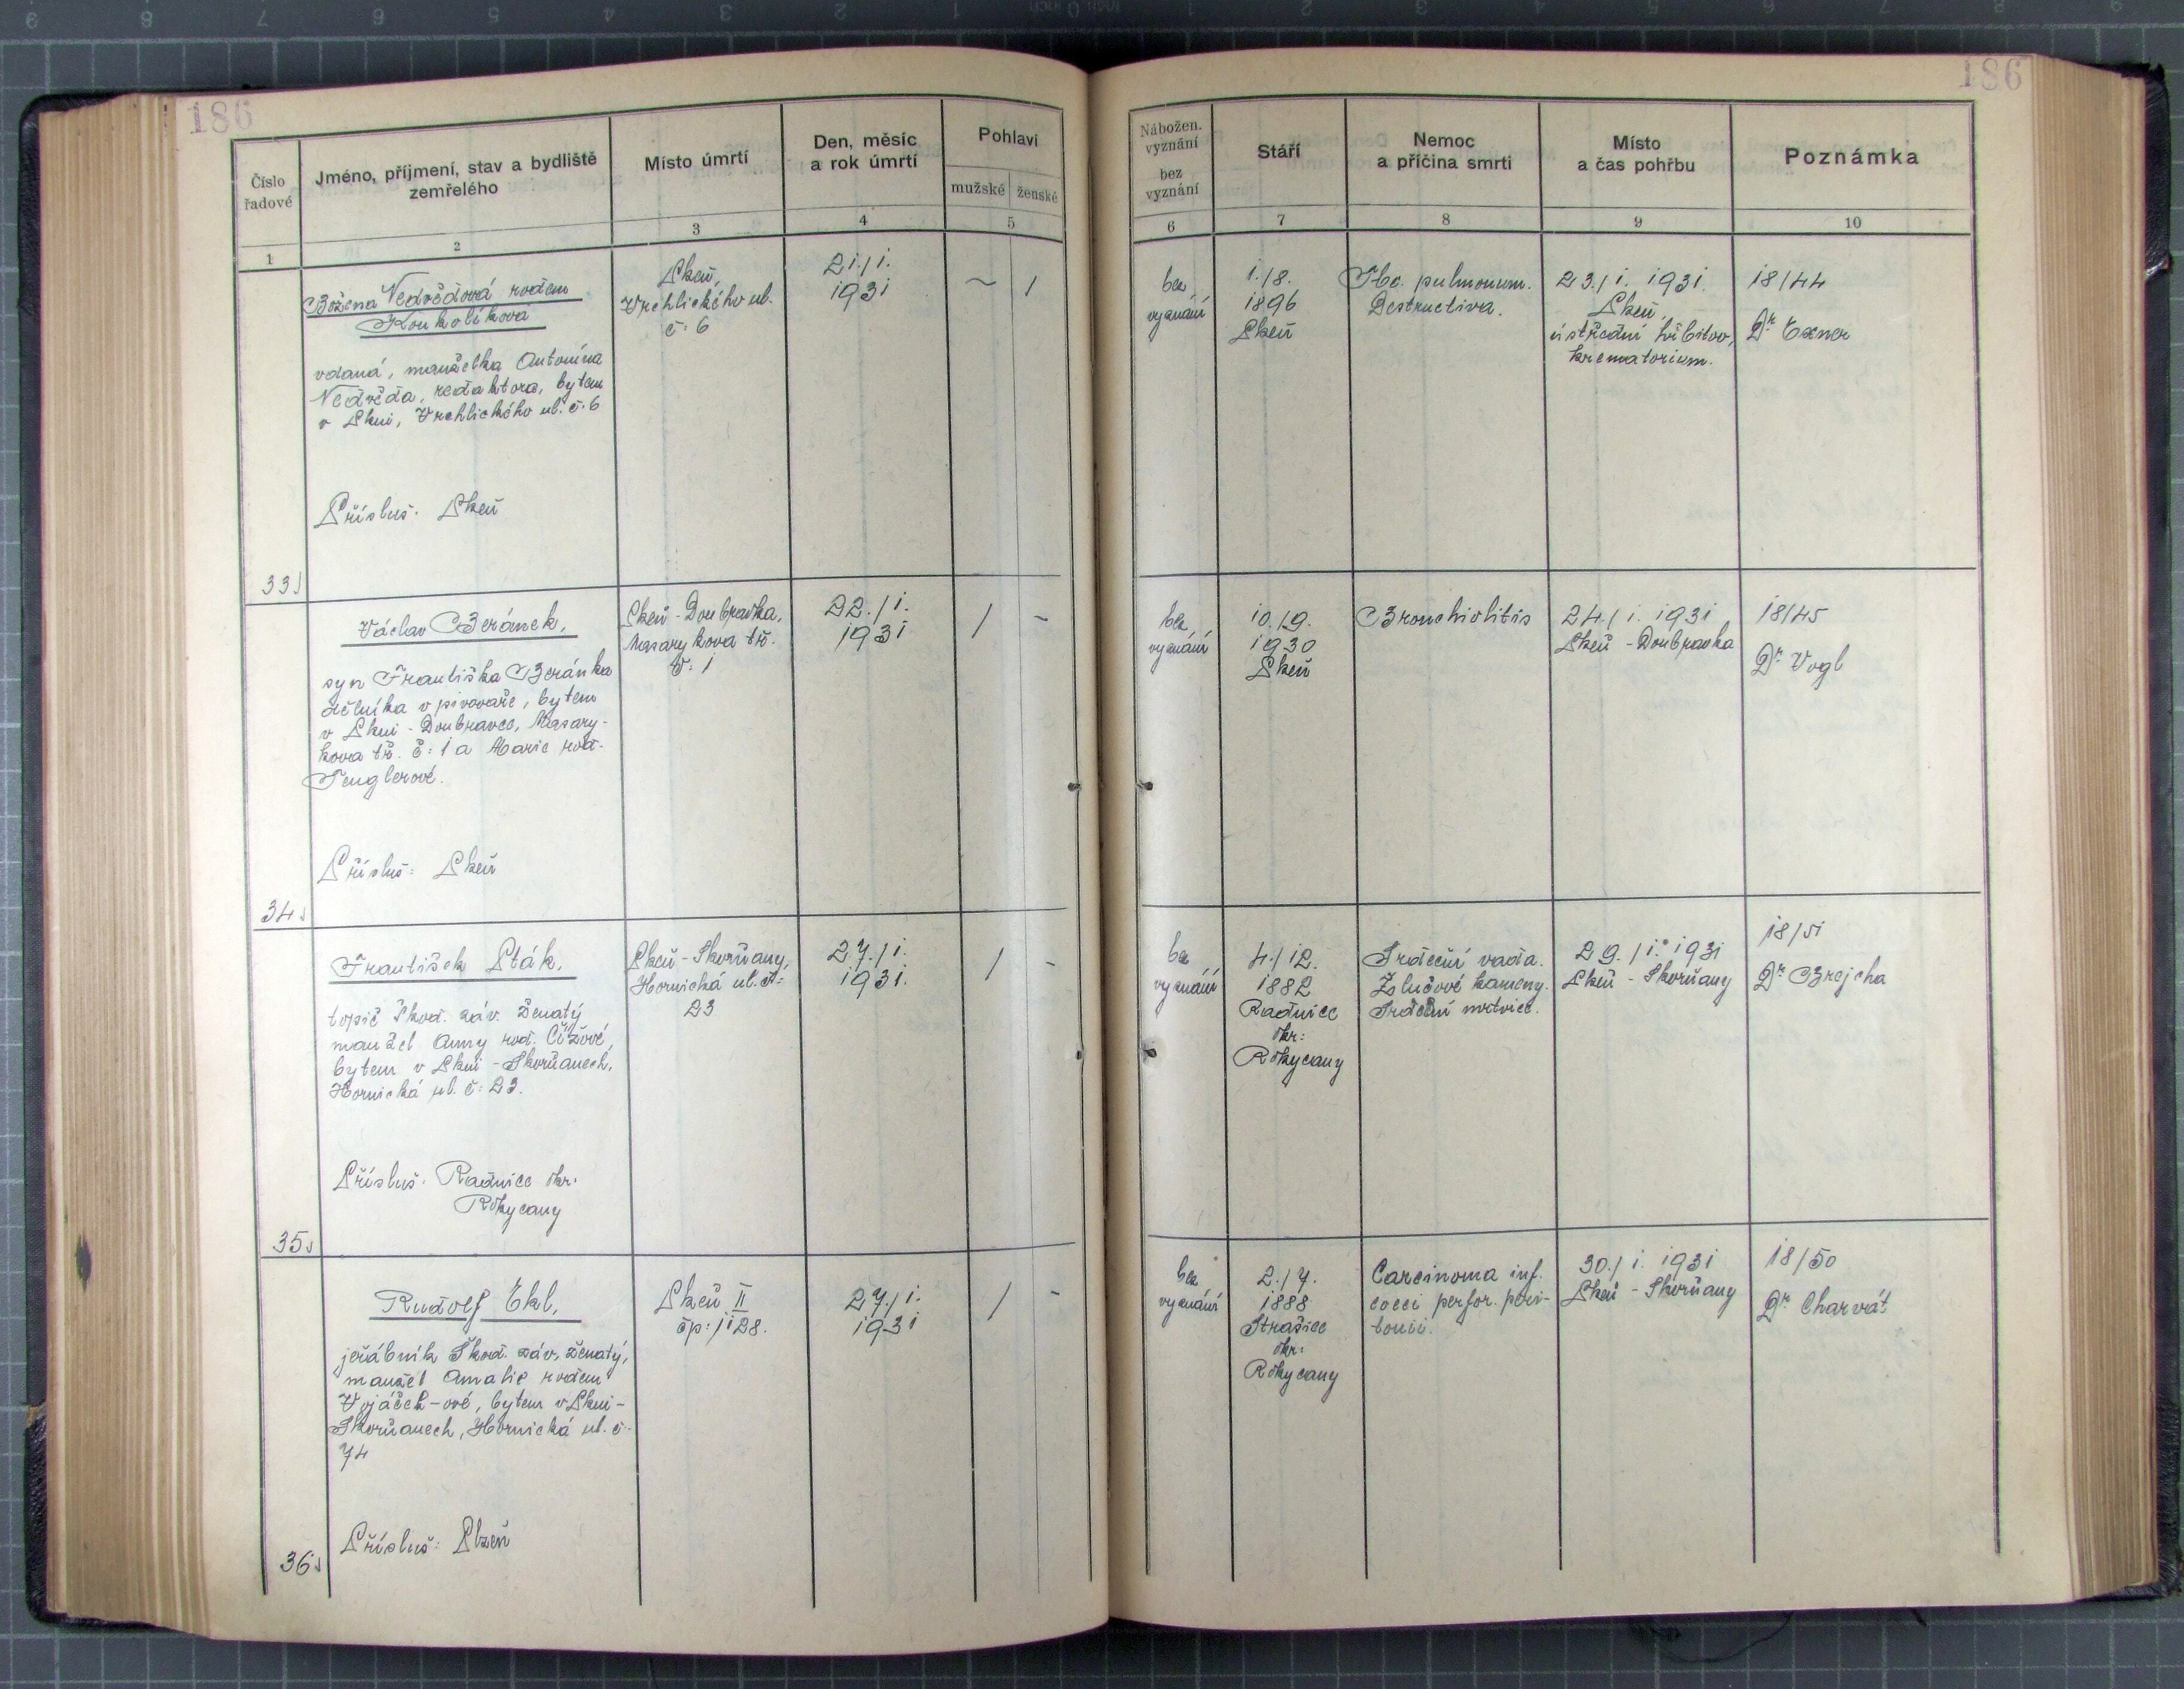 186
Číslo
řadové
Jméno, příjmení, stav a bydliště
zemřelého
Místo úmrtí
Den, měsíc
a rok úmrtí
Pohlaví
mužské
ženské
1
2
3
4
5
Božena Nedvědová rodem
Koukolíková
vdaná, manželka Antonína
Nedvěda, redaktora, bytem
v Plzni, Vrchlického ul. č. 6
Příslus. Plzeň
33
Plzeň,
Vrchlického ul.
č. 6
21./1.
1931
~ 1
Václav Beránek,
syn Františka Beránka
dělníka v pivovaře, bytem
v Plzni - Doubravce, Masary-
kova tř. č: 1 a Marie rod.
Tenglerové.
Přísluš: Plzeň
34
Plzeň - Doubravka,
Masarykova tř.
č: 1
22./1.
1931
1 -
František Pták,
topič Škod. záv. ženatý
manžel Anny rod. Čížové,
bytem v Plzni - Skvrňanech,
Hornická ul. č: 23.
Přísluš. Radnice okr.
Rokycany
35
Plzeň - Skvrňany,
Hornická ul. č:
23
27./1.
1931.
1 -
Rudolf Ekl,
jeřábník Škod. záv. ženatý,
manžel Amalie rodem
Vojáček-ové, bytem v Plzni -
Skvrňanech, Hornická ul. č.
74
Přísluš: Plzeň
36
Plzeň II
čp: 1128.
27./1.
1931
1 -
186
Nábožen.
vyznání
bez
vyznání
Stáří
Nemoc
a příčina smrti
Místo
a čas pohřbu
Poznámka
6
7
8
9
10
bez
vyznání
1./8.
1896
Plzeň
Tbc. pulmonum.
Destructiva.
23./1. 1931.
Plzeň,
ústřední hřbitov,
krematorium.
18/44
Dr Exner
bez
vyznání
10./9.
1930
Plzeň
Bronchiolitis
24./1. 1931
Plzeň - Doubravka
18/45
Dr Vogl
bez
vyznání
4./12.
1882
Radnice
okr:
Rokycany
Srdeční vada.
Žlučové kameny.
Srdeční mrtvice.
29./1. 1931
Plzeň - Skvrňany
18/51
Dr Brejcha
bez
vyznání
2./7.
1888
Strašice
okr:
Rokycany
Carcinoma inf.
coeci perfor. peri-
tonii.
30./1. 1931
Plzeň - Skvrňany
18/50
Dr Charvát